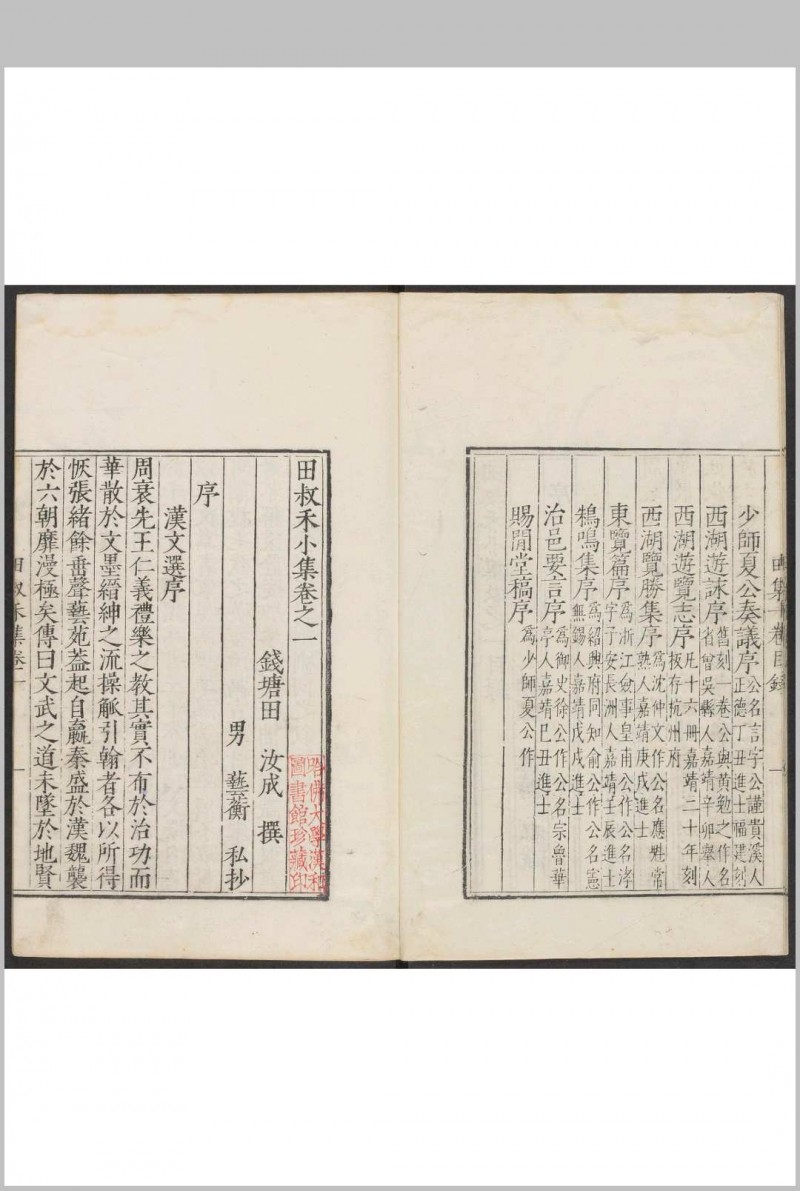 少師夏公奏議序 公名言字公謹貴溪人
正德丁丑進士福建刻
西湖遊詠序 舊刻一卷公與黃勉之作名
省曾吳縣人嘉靖辛卯舉人
西湖遊覽志序 凡十六冊嘉靖二十年刻
板存杭州府
西湖覽勝集序 為沈仲文作公名應魁常
熟人嘉靖庚戌進士
東覽篇序 為浙江僉事皇甫公作公名涍
字子安長洲人嘉靖壬辰進士
鵷鳴集序 為紹興府同知俞公作公名憲
無錫人嘉靖戊戌進士
治邑要言序 為御史徐公作公名宗魯華
亭人嘉靖己丑進士
賜閒堂稿序 為少師夏公作
田叔禾小集卷之一
錢塘田 汝成 撰
男 藝蘅 私抄
序
漢文選序
周衰先王仁義禮樂之教其實不布於治功而
華散於文墨縉紳之流操觚引翰者各以所得
恢張緒餘垂聲藝苑蓋起自嬴秦盛於漢魏襲
於六朝靡漫極矣傳曰文武之道未墜於地賢
哈佛大學漢和
圖書館珍藏印
田叔禾集卷一